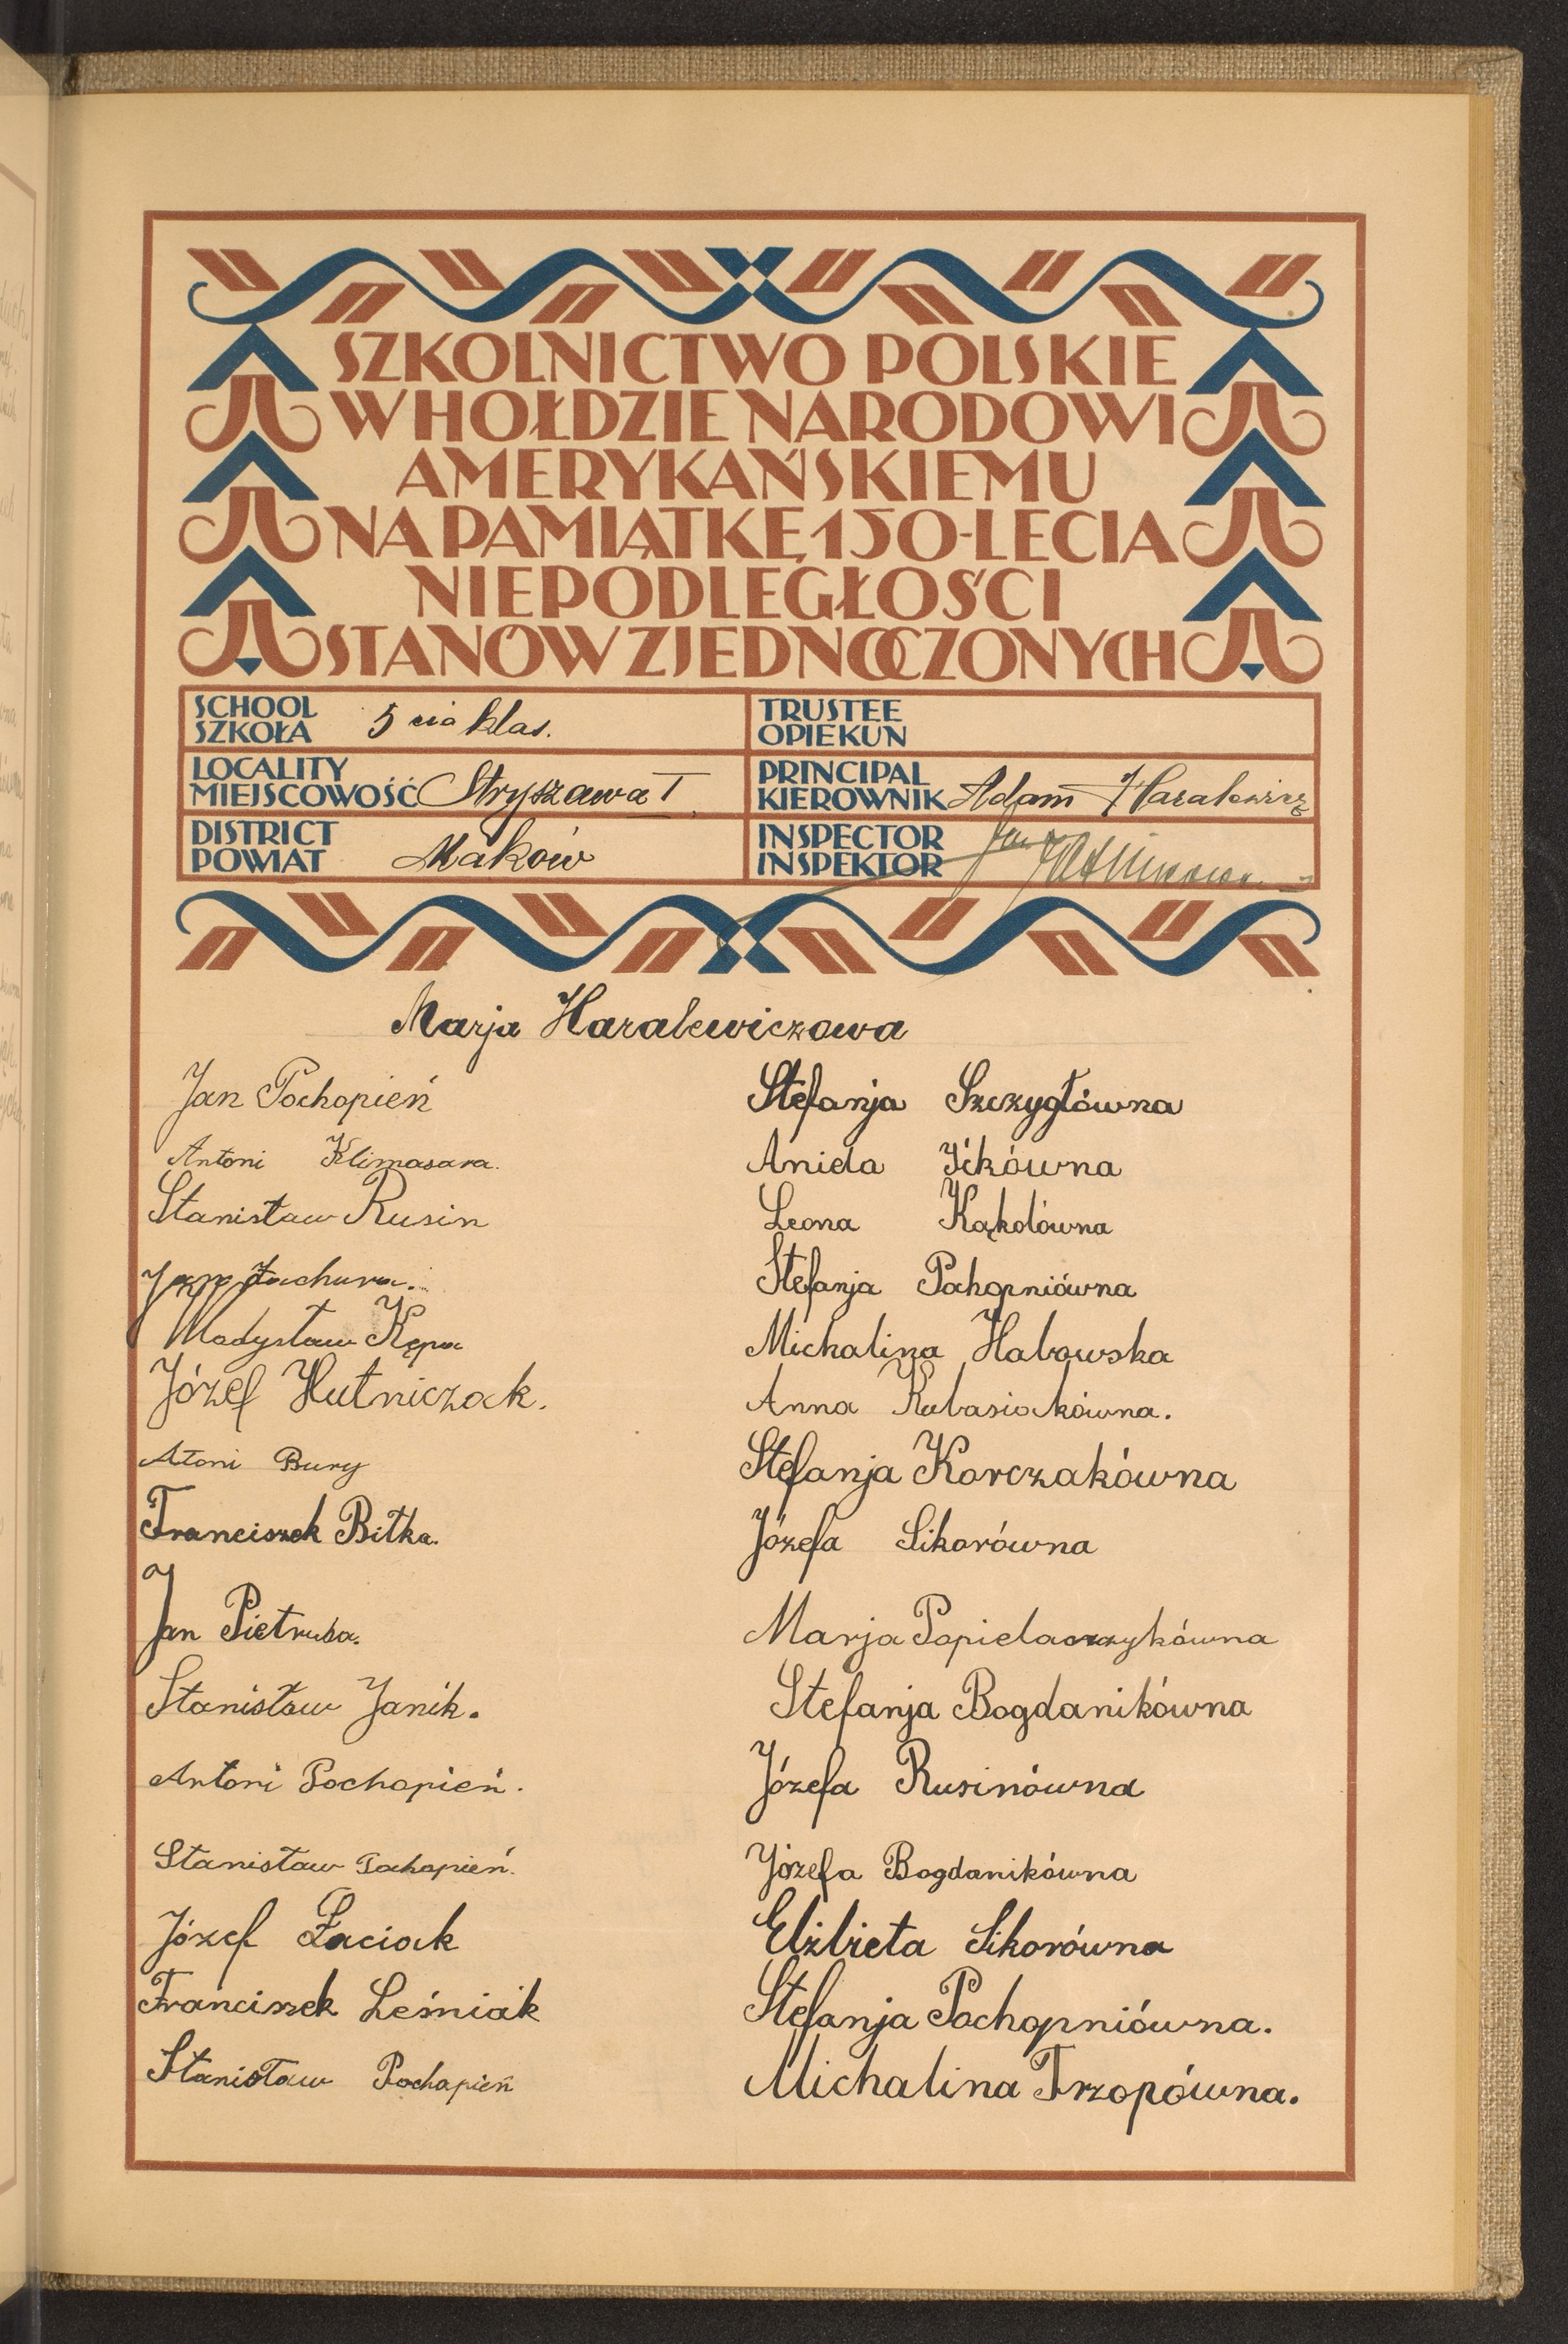 SZKOLNICTWO POLSKIE
W HOŁDZIE NARODOWI
AMERYKAŃSKIEMU
NA PAMIĄTKĘ 150-LECIA
NIEPODLEGŁOŚCI
STANÓW ZJEDNOCZONYCH
SCHOOL
SZKOŁA 5 cio klas.
TRUSTEE
OPIEKUN
LOCALITY
MIEJSCOWOŚĆ Stryszawa I
PRINCIPAL
KIEROWNIK Adam Haralewicz
DISTRICT
POWIAT Maków
INSPECTOR
INSPEKTOR Jan
Marja Haralewiczowa
Jan Pochopień
Antoni Klimasara.
Stanisław Rusin
Jan Zachura.
Władysław Kępa
Józef Hutniczak.
Atoni Bury
Franciszek Bitka.
Jan Pietrusa.
Stanisław Janik.
Antoni Pochopień.
Stanisław Pochopień.
Józef Łaciak
Franciszek Leśniak
Stanisław Pochopień
Stefanja Szczygłówna
Aniela Ickówna
Leona Kąkolówna
Stefanja Pochopniówna
Michalina Habowska
Anna Kubasiakówna.
Stefanja Korczakówna
Józefa Sikorówna
Marja Popielarczykówna
Stefanja Bogdanikówna
Józefa Rusinówna
Józefa Bogdanikówna
Elżbieta Sikorówna
Stefanja Pochopniówna.
Michalina Trzopówna.